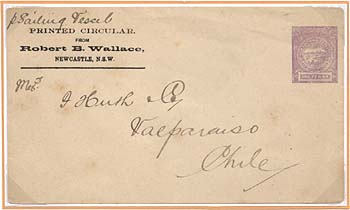 p Sailing Vessel
PRINTED CIRCULAR.
FROM
Robert B. Wallace,
NEWCASTLE, N.S.W.
ONE PENNY
Messrs
J Huth & Co
Valparaiso
Chile